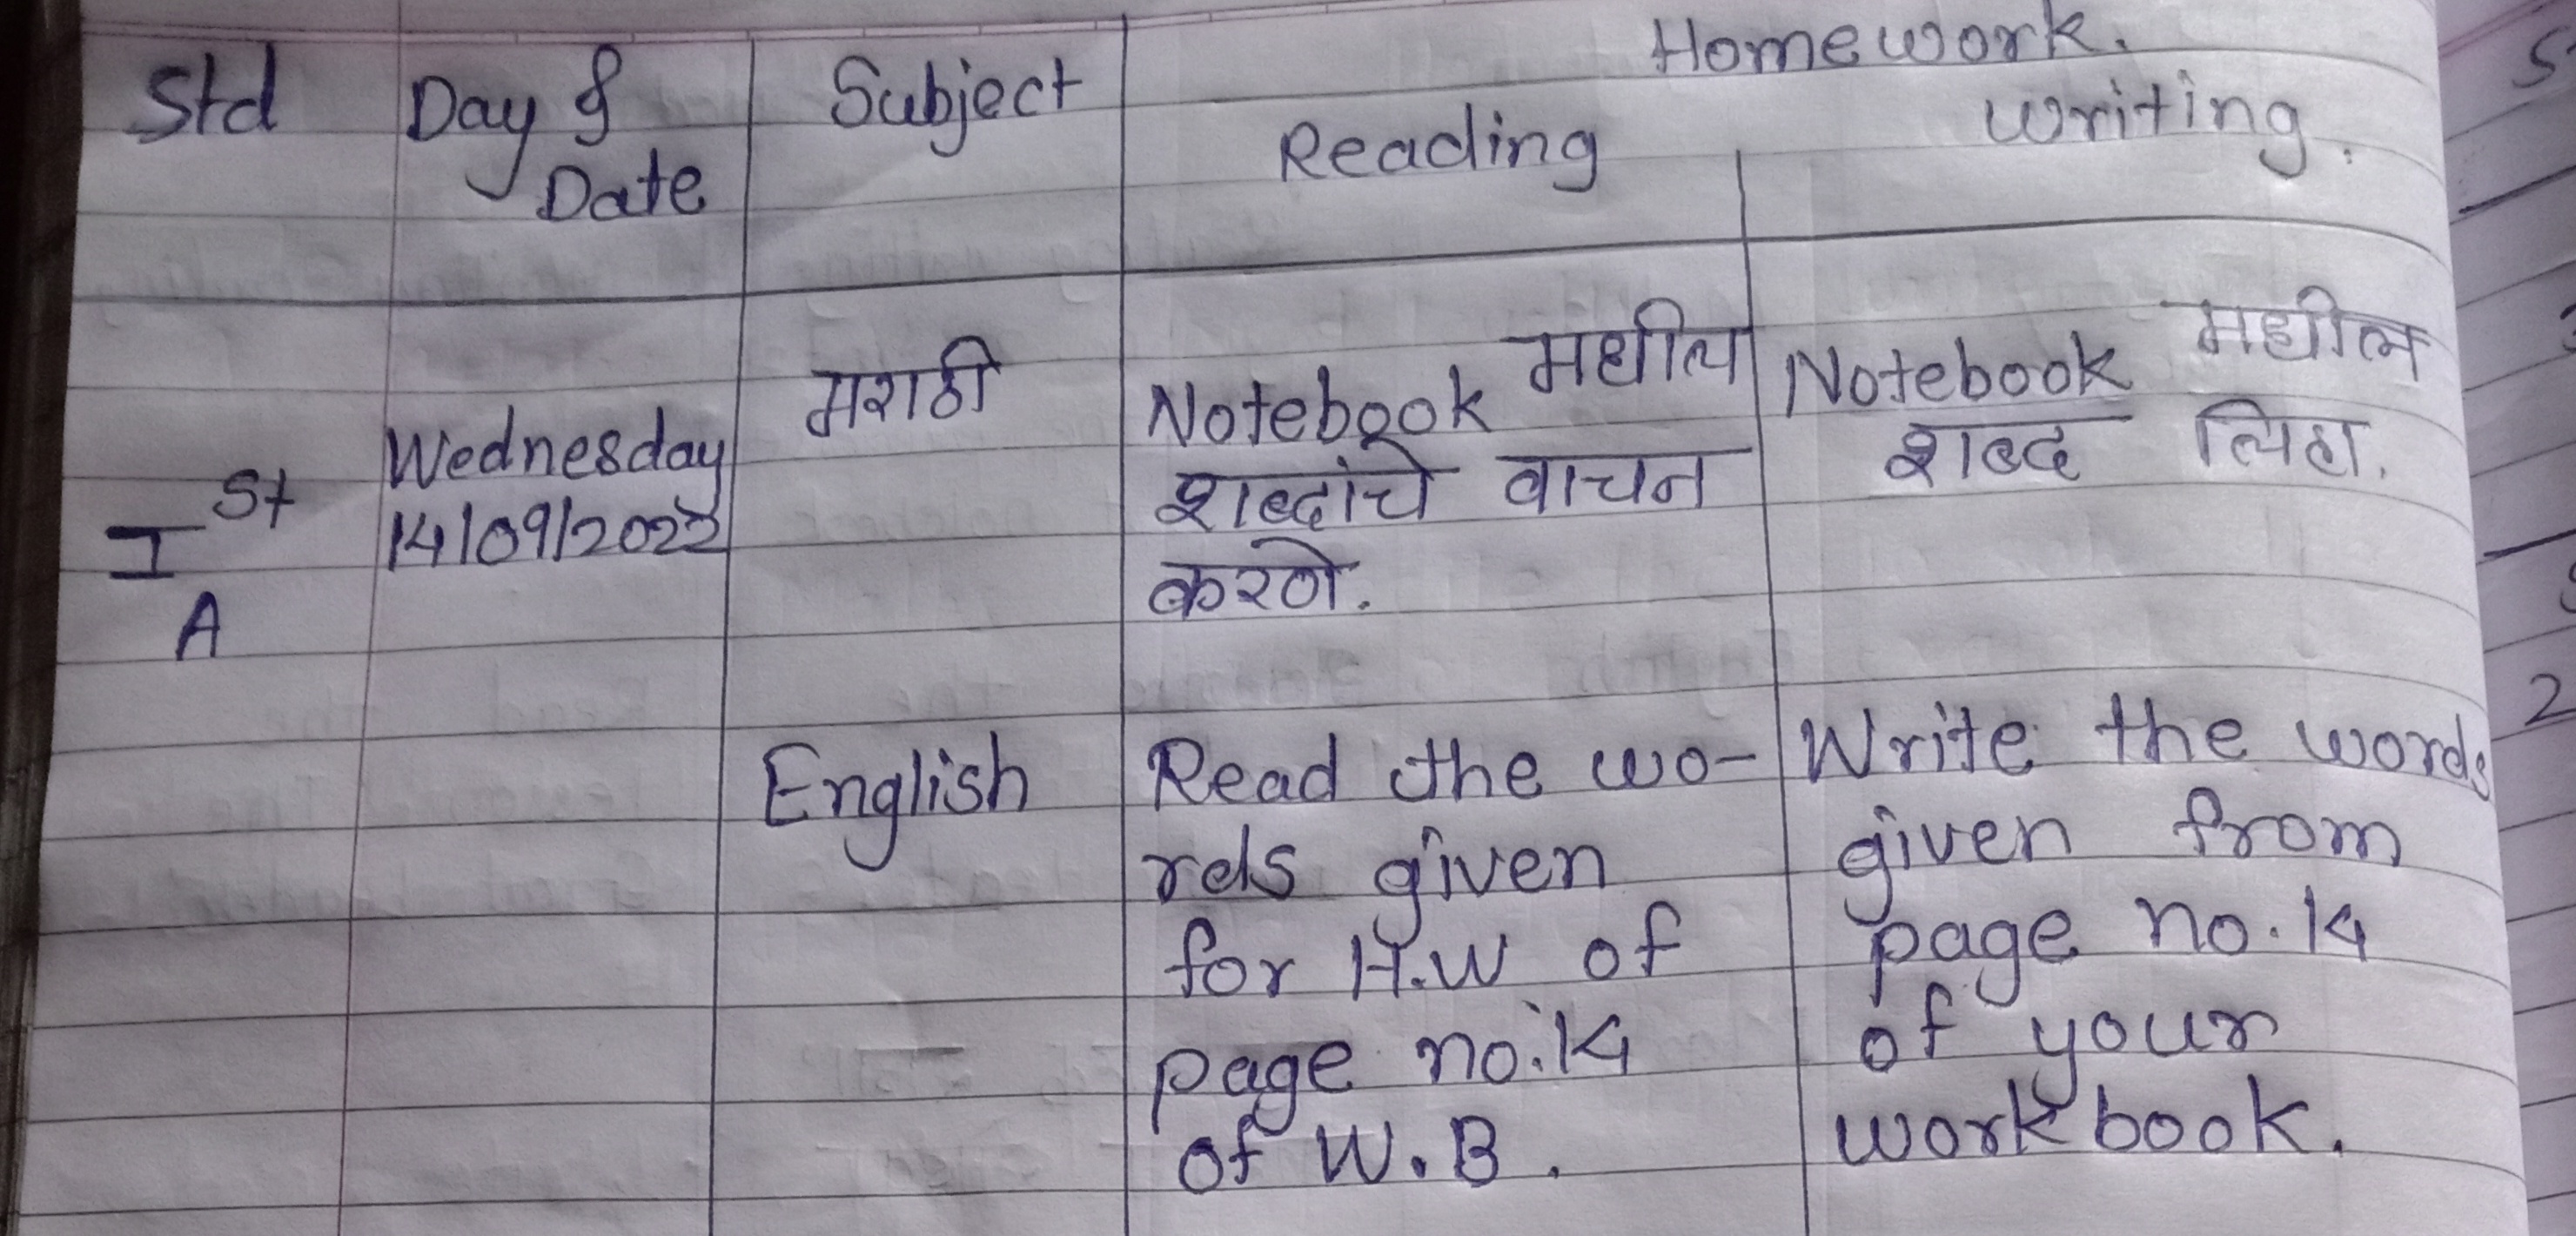 Homework.
Std Day & Subject Reading Writing.
Date
मराठी Notebook मधील Notebook मधील
Wednesday शब्दांचे वाचन शब्द लिहा.
Ist 14/09/2022 करणे.
A
English Read the wo- Write the words
rds given given from
for H.W of page no. 14
page no. 14 of your
of W.B. workbook.